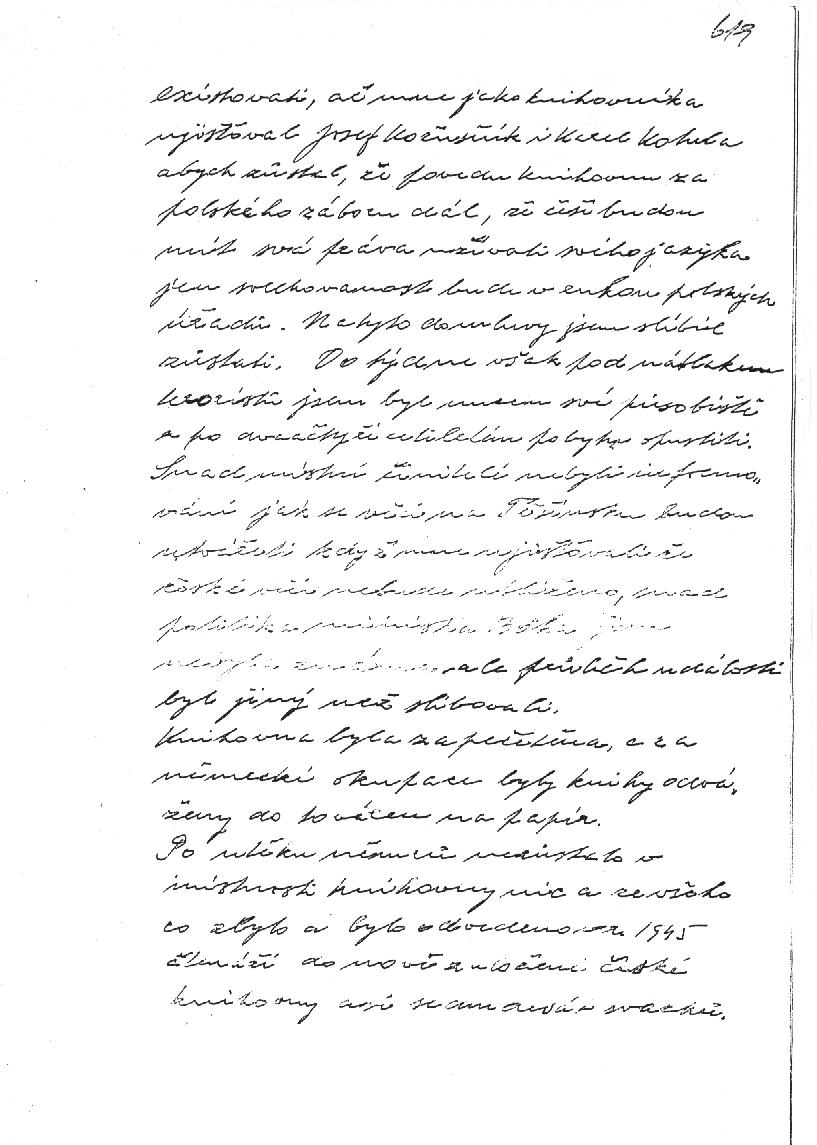 619
existovati, ač mne jako knihovníka
ujišťoval Josef Kožusník i Karel Kotula
abych zůstal, že povedu knihovnu za
polského záboru dál, že češi budou
mít svá práva užívati svého jazyka
jen vedle bude v enkou polských
úřadů. Na tyto domluvy jsem slíbil
zůstati. Do týdne však pod nátlakem
jsem byl nucen své působiště
a po dvaačtyřicetiletém pobytu opustiti.
Snad místní činitelé nebyli informo„
váni jak se věci na Těšínsku budou
utvářeti když mne ujišťovali že
české věci nebude ublíženo, snad
politika ministra Becka jim
nebyla známa ale průběh událostí
byl jiný než slibovali.
Knihovna byla zapečetěna, a za
německé okupace byly knihy odvá„
ženy do továren na papír.
Po útěku němců nezůstalo v
místnosti knihovny nic a ze všeho
co zbylo a bylo odvedeno v r. 1945
čtenáři do nově založené české
knihovny asi sedmdesát svazků.